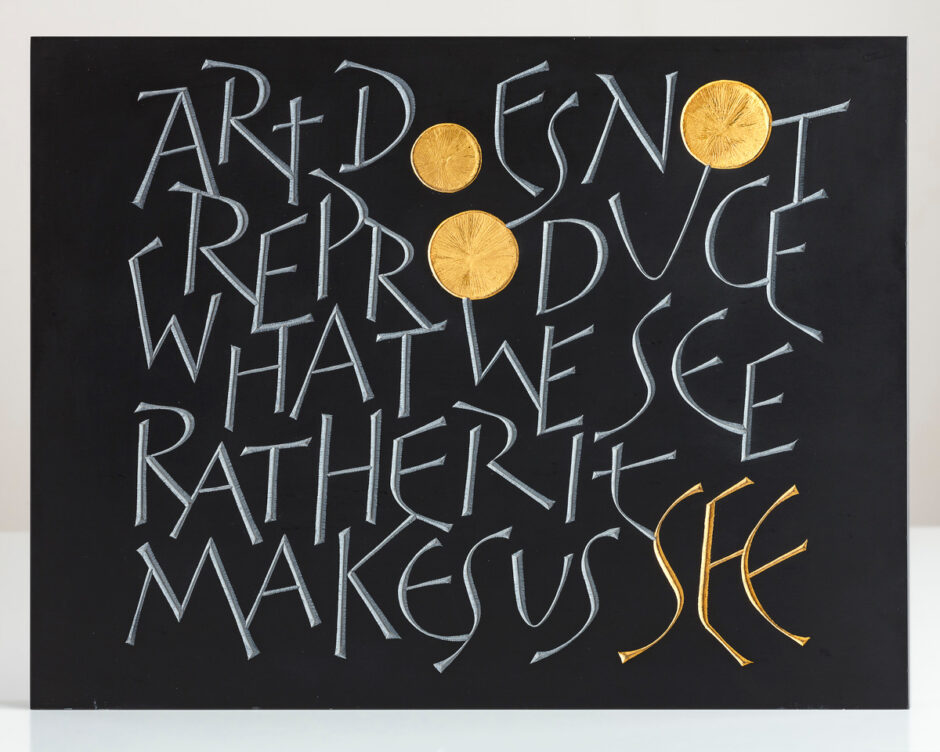 ART DOES NOT
REPRODUCE
WHAT WE SEE
RATHER IT
MAKES US SEE